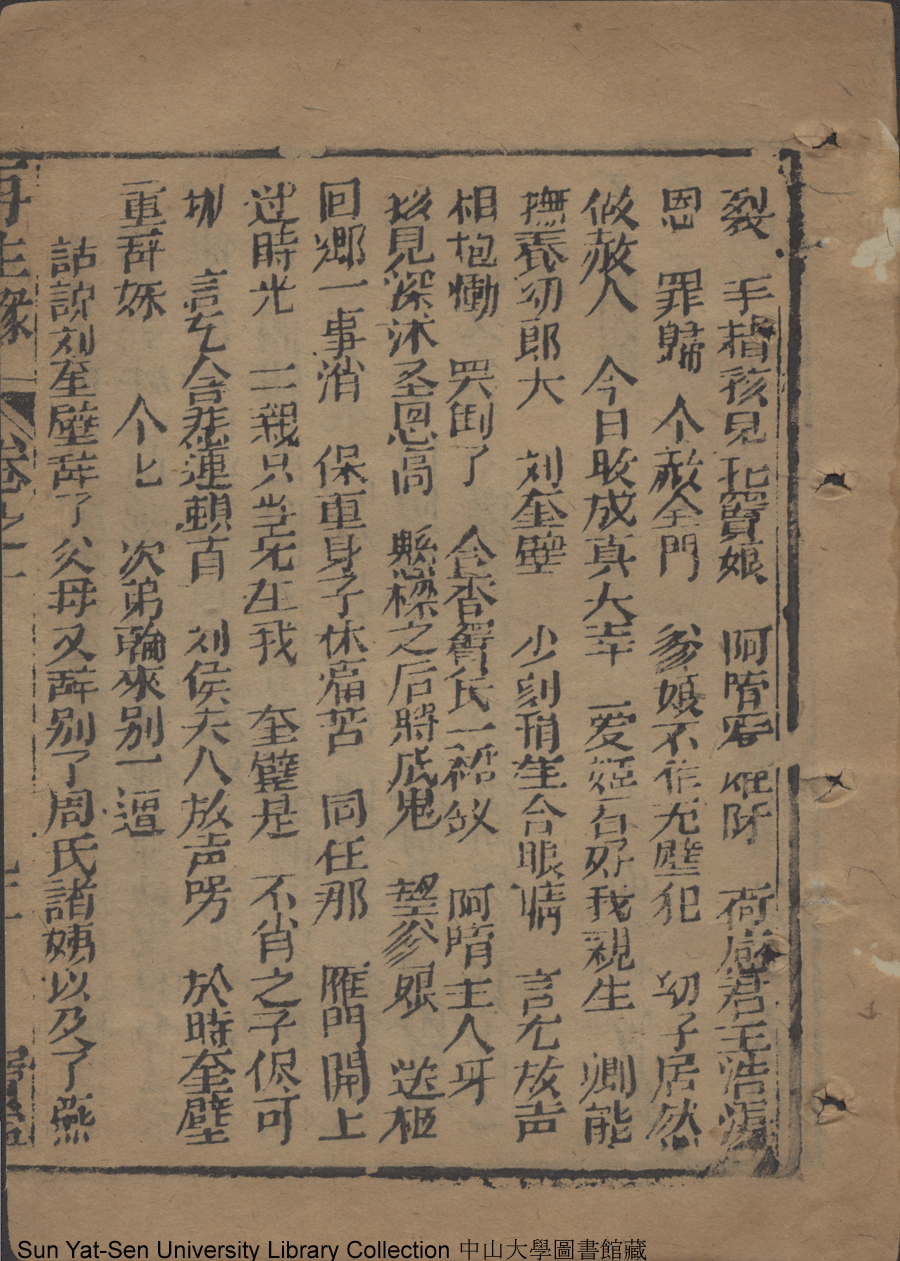 裂 手指孩兒托寶娘 阿隋 呀 荷感君王浩蕩
恩 罪歸个赦全門 爹娘不作无壁犯 幼子居然
做赦人 今日敢成真大幸 爱姬看好我親生 卿能
撫養幼郎大 刘奎壁 少刻捐生合眼情 言尢放声
相抱慟 哭倒了 含杏 氏二裙釵 阿唷主人牙
孩兒深沐圣恩高 懸樑之后將底鬼 望爹娘 送柩
回鄉一事消 保重身子休痛苦 同任那 雁門開上
过時光 二親只当先在我 奎璧是 不肖之子保可
抛 言乞含悲連頓首 刘侯夫人放声哭 於時奎壁
重辞妳 个匕 次弟輪來别一遍
話説刘奎壁辞了父母又辞别了周氏諸姨以及了燕
再生緣 卷之一
Sun Yat-Sen University Library Collection 中山大學圖書館藏